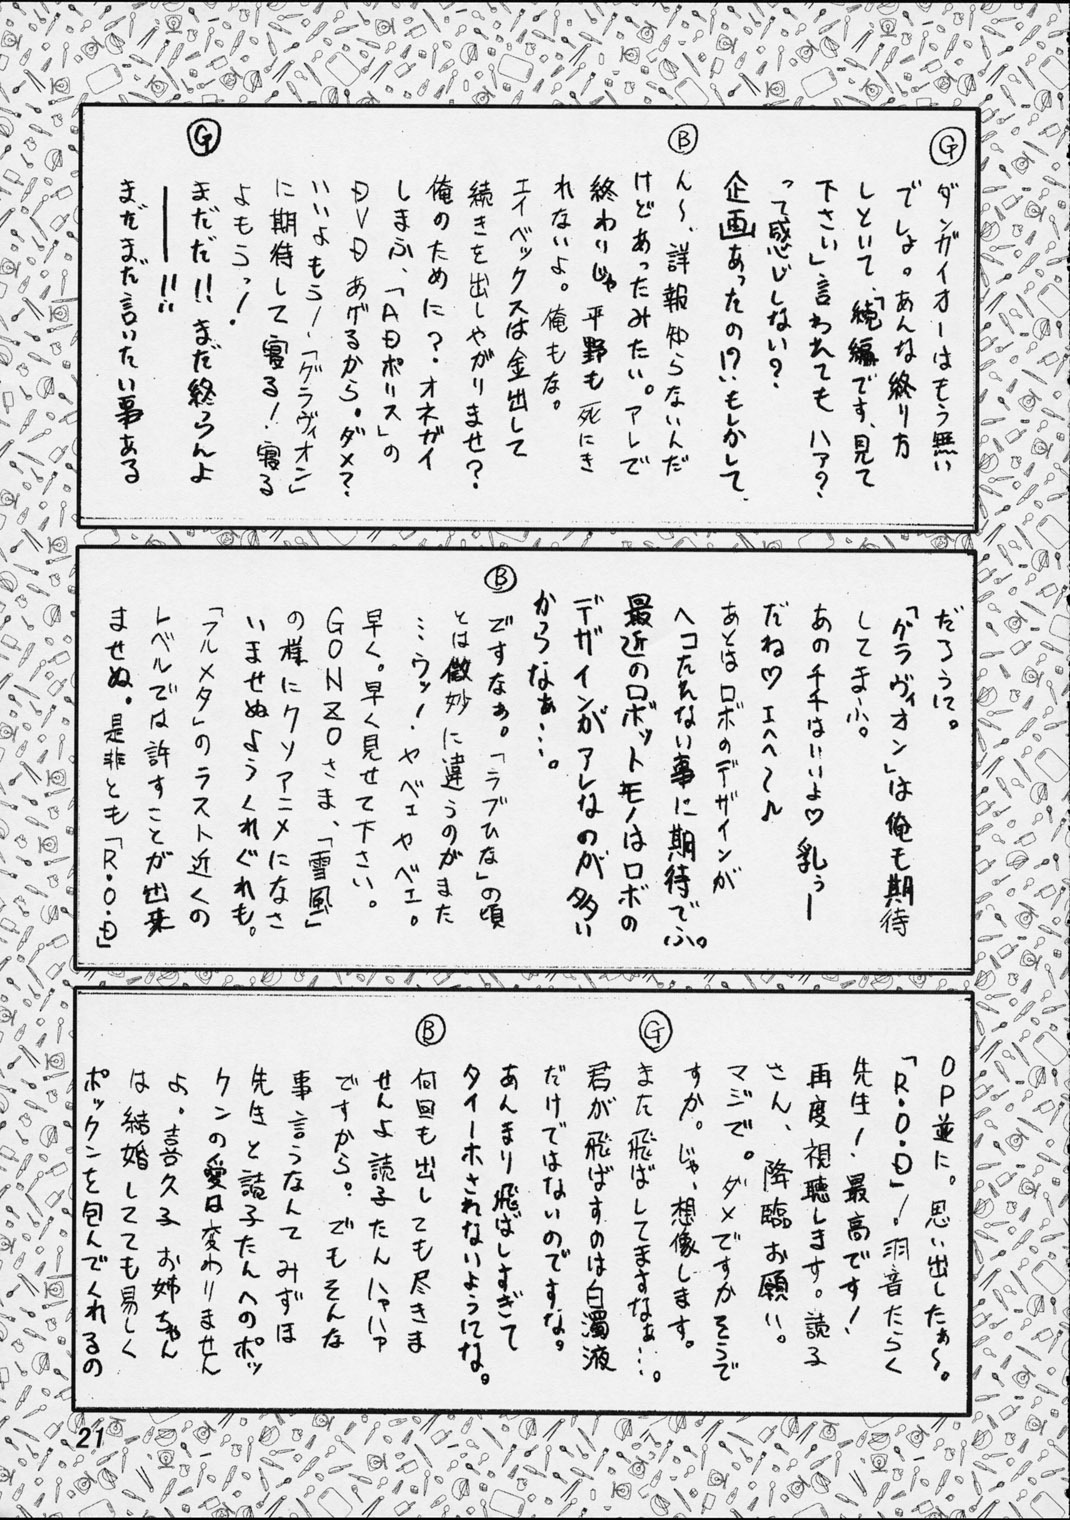 Ⓖ
ダンガイオーはもう無い
でしょ。あんな終り方
しといて、「続編です、見て
下さい」言われても ハァ?
って感じしない?
企画あったの!?もしかして、
Ⓑ
ん〜、詳報知らないんだ
けどあったみたい。アレで
終わりじゃ 平野も死にき
れないよ。俺もな。
エイベックスは金出して
続きを出しやがりませ?
俺のために?オネガイ
しまふ、「ADポリス」の
DVDあげるから。ダメ?
いいよもう!「グラヴィオン」
に期待して寝る!寝る
よもうっ!
Ⓖ
まだだ!!まだ終らんよ
――!!
まだまだ言いたい事ある
だろうに。
「グラヴィオン」は俺も期待
してまふ。
あの千千はいいよ♡乳ぅー
だね♡エヘヘ〜♪
あとはロボのデザインが
ヘコたれない事に期待でふ。
最近のロボットモノはロボの
デザインがアレなのが多い
からなぁ…。
Ⓑ
ですなぁ。「ラブひな」の頃
とは微妙に違うのがまた
…ウッ!ヤベェヤベエ。
早く。早く見せて下さい。
GONZOさま、「雪風」
の様にクソアニメになさ
いませぬようくれぐれも。
「フルメタ」のラスト近くの
レベルでは許すことが出来
ませぬ。是非とも「R・O・D」
OP並に。思い出したぁ〜。
「R・O・D」!羽音たらく
先生!最高です!
再度視聴します。読子
さん、降臨お願い。
マジで。ダメですかそうで
すか。じゃ、想像します。
Ⓖ
また飛ばしてますなぁ…。
君が飛ばすのは白濁液
だけではないのですな。
あんまり飛ばしすぎて
タイーホされないようにな。
Ⓑ
何回も出しても尽きま
せんよ読子たんハァハァ
ですから?でもそんな
事言うなんてみずほ
先生と読子たんへのポッ
クンの愛は変わりません
よ。喜久子お姉ちゃん
は結婚してても易しく
ポックンを包んでくれるの
21